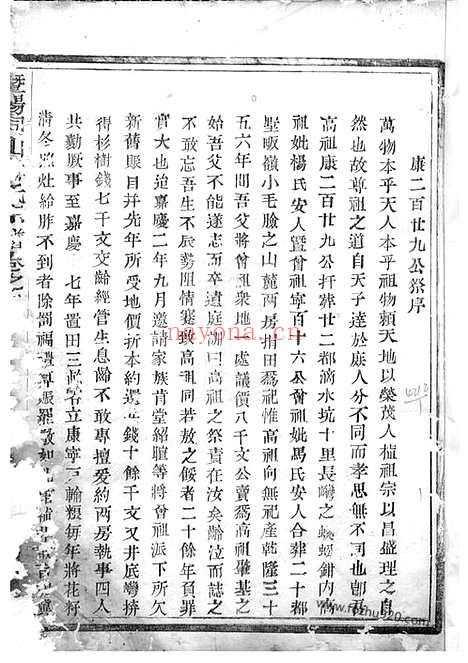 康二百廿九公祭序
萬物本乎天人本乎祖物賴天地以榮茂人植祖宗以昌盛理之自
然也故尊祖之道自天子達於庶人分不同而孝思無不同也
高祖康二百廿九公拤葬廿二都滴水坑十里長之蜈蚣鉗內高
祖妣楊氏安人曁曾祖寧百十六公曾祖妣馬氏安人合葬二十都
墅畈嶺小毛臉之山麓兩房捐田爲祀惟高祖向無祀產乾隆三十
五六年間吾父將曾祖衆地一處議價八千文公賣爲高祖肇基之
始吾父不能遂志而卒遺庭訓曰高祖之祭責在汝矣齡泣而誌之
不敢忘吾生不辰勢阻情蹇與高祖同若敖之餒者二十餘年負罪
實大也迨嘉慶二年九月邀請家族肯堂紹膻等將曾祖派下所欠
新舊賬目并先年所受地價折本約還錢十餘千文又井底灣拚
得杉樹錢七千文交齡經管生息齡不敢專擅爰約兩房執事四人
共勷厥事至嘉慶 七年置田三畝各立康寧三輪類每年將花籽
清冬 灶給胙不到者除罰福 敬如
暨陽 山
nayona.cn